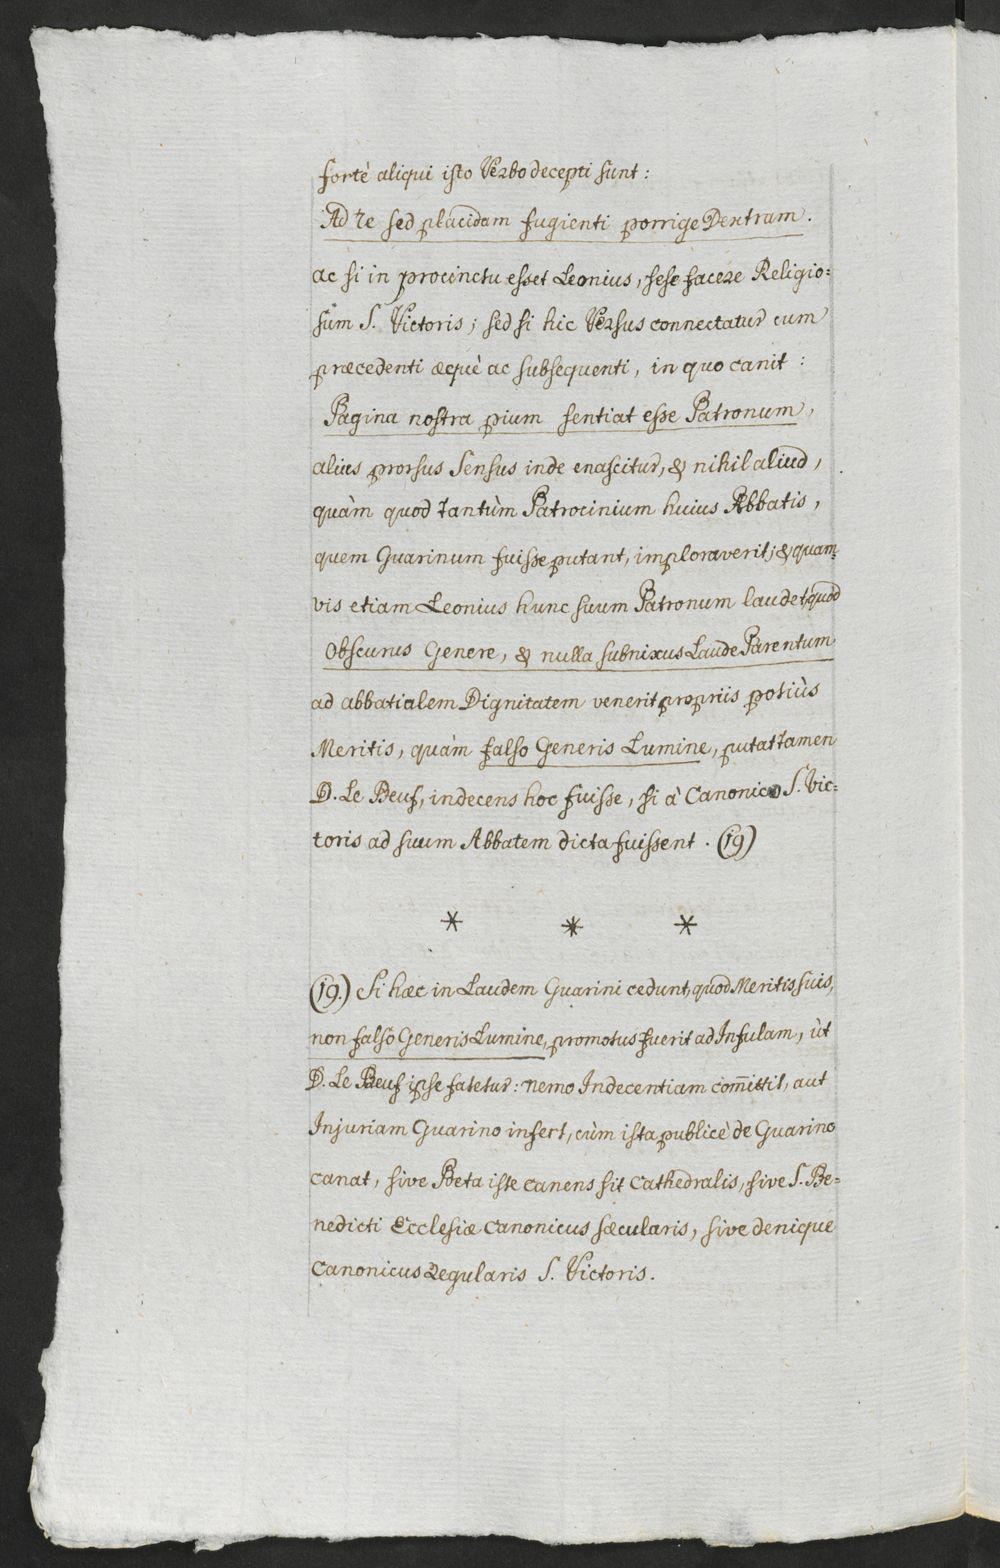 fortè aliqui isto Verbo decepti sunt:
Ad te sed placidam fugienti porrige Dextram.
ac si in procinctu esset Leonius, sese facere Religio=
sum S. Victoris; sed si hic Versus connectatur cum
præcedenti æquè ac subsequenti, in quo canit:
Pagina nostra pium sentiat esse Patronum,
alius prorsus Sensus inde enascitur, & nihil aliud,
quàm quod tantùm Patrocinium huius Abbatis,
quem Guarinum fuisse putant, imploraverit; & quam-
vis etiam Leonius hunc suum Patronum laudet, quod
Obscurus Genere, & nulla subnixus Laude Parentum
ad abbatialem Dignitatem venerit propriis potiùs
Meritis, quàm falso Generis Lumine, putat tamen
D. Le Beuf, indecens hoc fuisse, si à Canonico S. Vic=
toris ad suum Abbatem dicta fuissent. (19)
* * *
(19.) Si hæc in Laudem Guarini cedunt, quod Meritis suis,
non falso Generis Lumine, promotus fuerit ad Insulam, ùt
D. Le Beuf ipse fatetur: nemo Indecentiam com̄ittit, aut
Injuriam Guarino infert, cùm ista publicè de Guarino
canat, sive Poeta iste canens sit Cathedralis, sive S. Be=
nedicti Ecclesiæ Canonicus sæcularis, sive denique
Canonicus Regularis S. Victoris.